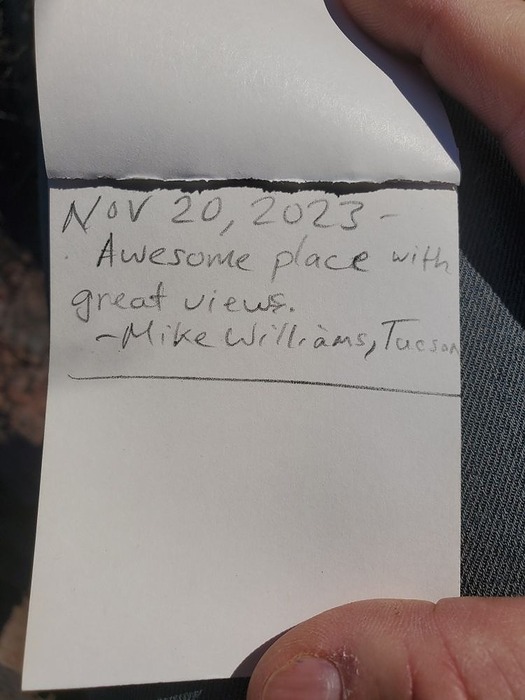 Nov 20, 2023 -
Awesome place with
great views.
-Mike Williams, Tucson